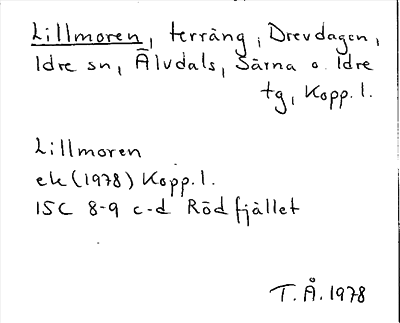 Lillmoren, terräng, Drevdagen,
Idre sn, Älvdals, Särna o. Idre
tg, Kopp. l.
Lillmoren
ek (1978) Kopp. l.
15C 8-9 c-d Rödfjället
T. Å. 1978